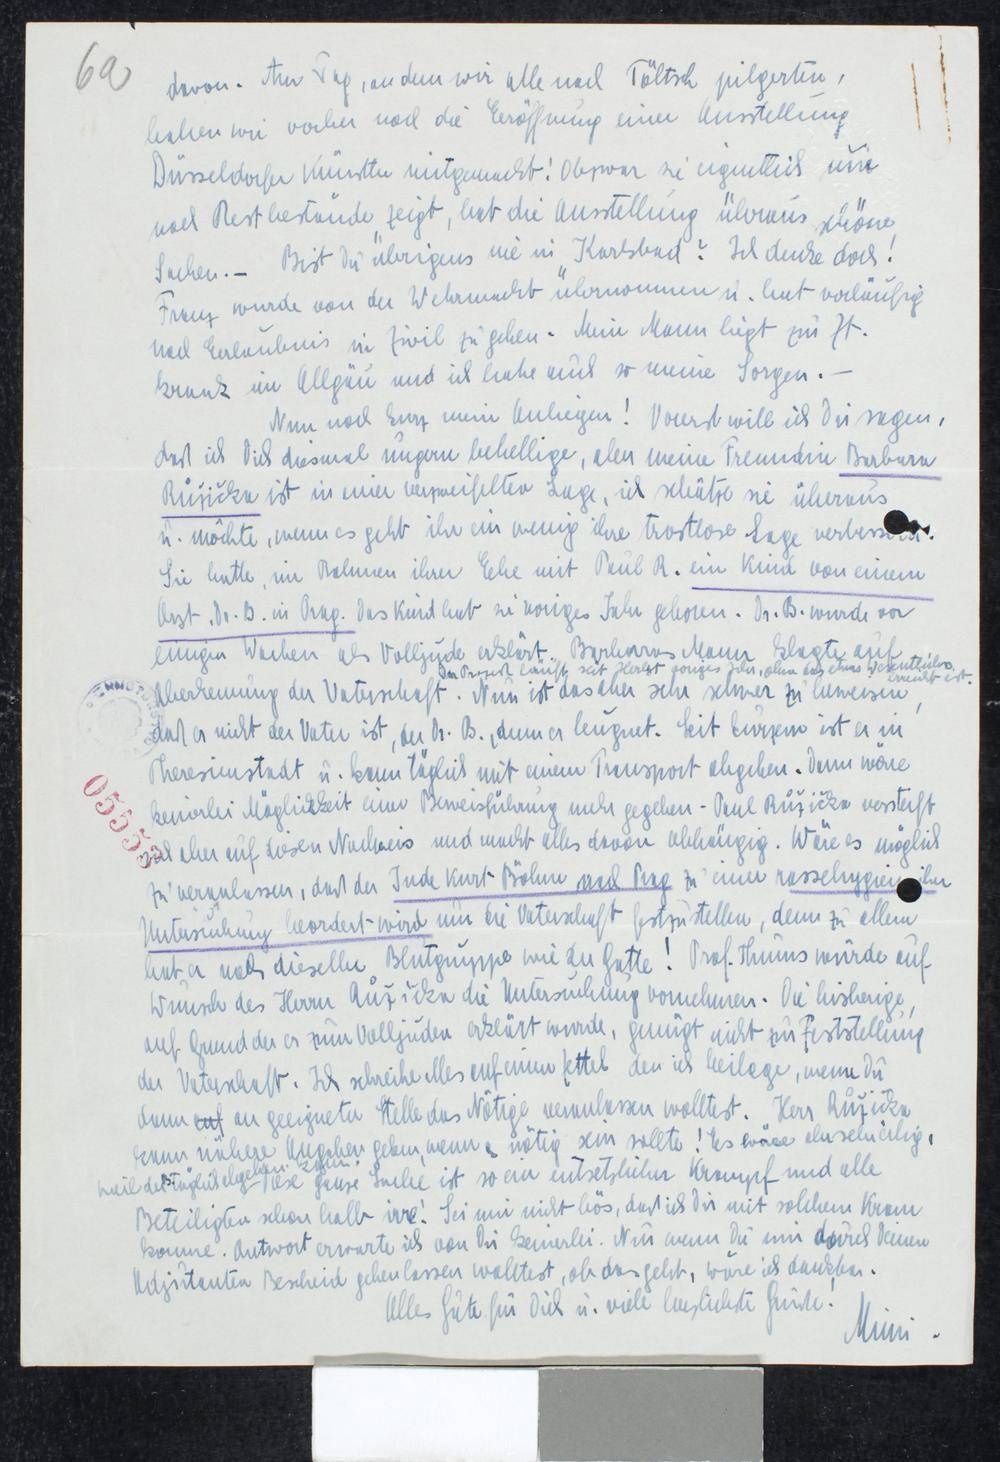 6a
davon. Am Tag, an dem wir alle nach Töltsch pilgerten,
haben wir vorher noch die Eröffnung einer Ausstellung
Düsseldorfer Künstler mitgemacht! Obzwar sie eigentlich nur
noch Restbestände zeigt, hat die Ausstellung überaus schöne
Sachen. – Bist Du übrigens nie in Karlsbad? Ich denke doch!
Franz wurde von der Wehrmacht übernommen u. hat vorläufig
noch Erlaubnis in Zivil zu gehen. Mein Mann liegt zur Zt.
krank im Allgäu und ich habe auch so meine Sorgen. –
Nun noch kurz mein Anliegen! Vorerst will ich Dir sagen,
dass ich Dich diesmal ungern behellige, aber meine Freundin Barbara
Růžička ist in einer verzweifelten Lage, ich schätze sie überaus
u. möchte, wenn es geht ihr ein wenig ihre trostlose Lage verbessern.
Sie hatte, im Rahmen ihrer Ehe mit Paul R. ein Kind von einem
Arzt, Dr. B. in Prag. Das Kind hat sie voriges Jahr geboren. Dr. B. wurde vor
einigen Wochen als Volljude erklärt. Barbaras Mann klagte auf
Der Prozess läuft seit Herbst voriges Jahr, ohne das etwas Wesentliches erreicht ist.
Aberkennung der Vaterschaft. Nun ist das aber sehr schwer zu beweisen,
dass er nicht der Vater ist, der Dr. B., denn er leugnet. Seit kurzem ist er in
Theresienstadt u. kann täglich mit einem Transport abgehen. Dann wäre
keinerlei Möglichkeit einer Beweisführung mehr gegeben – Paul Růžička versteift
sich aber auf diesen Nachweis und macht alles davon abhängig. Wäre es möglich
zu veranlassen, dass der Jude Kurt Böhm nach Prag zu einer rassehygienischen
Untersuchung beordert wird um die Vaterschaft festzustellen, denn zu allem
hat er noch dieselbe Blutgruppe wie der Gatte! Prof. Thums würde auf
Wunsch des Herrn Růžička die Untersuchung vornehmen. Die bisherige,
auf Grund der er zum Volljuden erklärt wurde, genügt nicht zur Feststellung
der Vaterschaft. Ich schreibe alles auf einen Zettel den ich beilege, wenn Du
dann auf an geeigneter Stelle das Nötige veranlassen wolltest. Herr Růžička
kann nähere Angaben geben, wenn nötig sein sollte! Es wäre eilig,
weil der täglich abgehen kann. Diese ganze Sache ist so ein entsetzlicher Krampf und alle
Beteiligten schon halb irre! Sei mir nicht bös, dass ich Dir mit solchem Kram
komme. Antwort erwarte ich von Dir keinerlei. Nur wenn Du mir durch Deinen
Adjutanten Bescheid geben lassen wolltest, ob das geht, wäre ich dankbar.
Alles Gute für Dich u. viele herzlichste Grüsse!
Mimi.